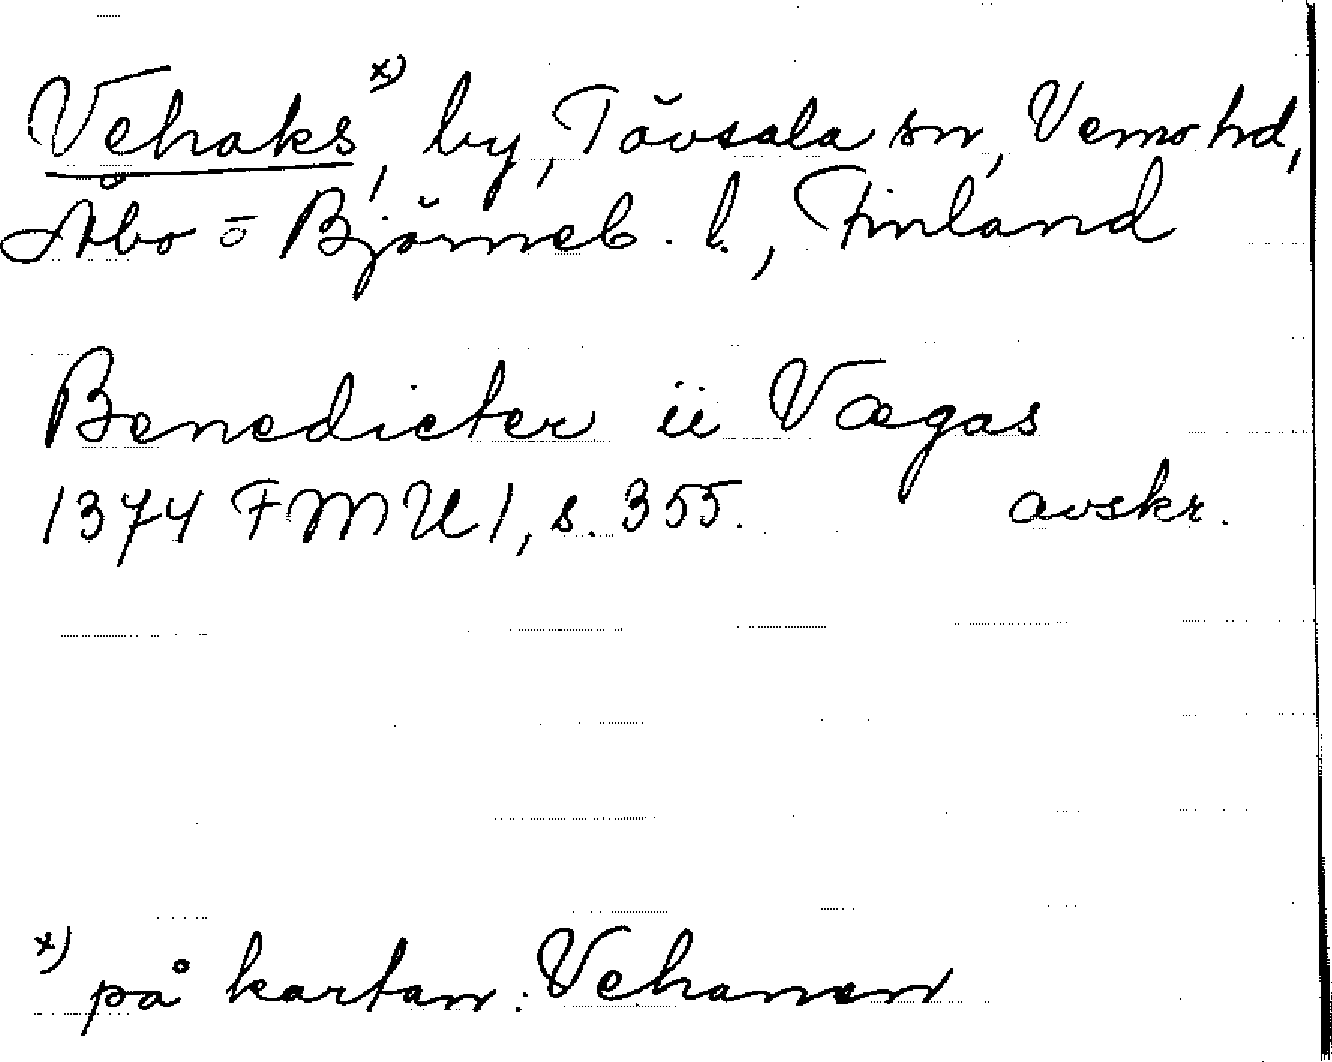 Vehaks x), by, Tövsala sn, Vemo hd,
Åbo o Björneb. l., Finland
Benedicter ii Vægas
1374 FMU 1, s. 355. avskr.
x) på kartan: Vehanen